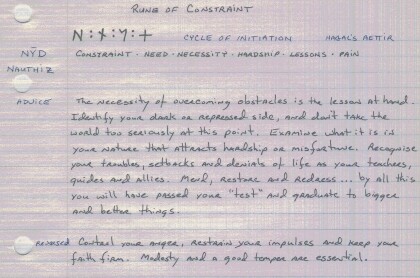 Rune of Constraint
N : X : 7 : + CYCLE OF INITIATION HAGAL'S AETTIR
NȲD CONSTRAINT · NEED · NECESSITY · HARDSHIP · LESSONS · PAIN
NAUTHIZ
ADVICE The necessity of overcoming obstacles is the lesson at hand.
Identify your dark or repressed side, and don't take the
world too seriously at this point. Examine what it is in
your nature that attracts hardship or misfortune. Recognise
your troubles, setbacks and denials of life as your teachers,
guides and allies. Mend, restore and redress... by all this
you will have passed your "test" and graduate to bigger
and better things.
REVERSED Control your anger, restrain your impulses and keep your
faith firm. Modesty and a good temper are essential.